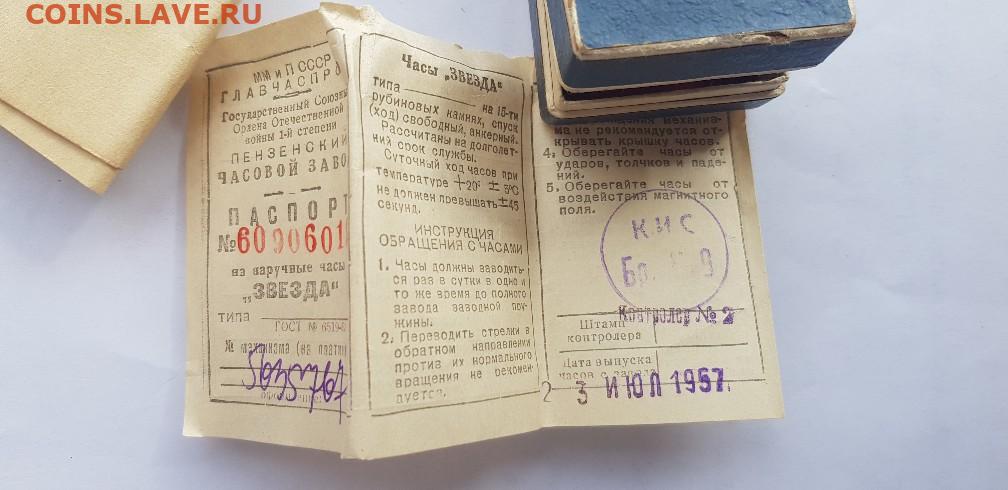 COINS.LAVE.RU
ММ и П СССР
ГЛАВЧАСПРО
Государственный Союзны
Ордена Отечественной
войны 1-й степени
ПЕНЗЕНСКИЙ
ЧАСОВОЙ ЗАВО
ПАСПОРТ
№ 6090601
на наручные часы
„ЗВЕЗДА“
типа
ГОСТ № 6519-
№ механизма (на платин
Часы „ЗВЕЗДА“
типа на 15-ти
рубиновых камнях, спуск
(ход) свободный, анкерный.
Рассчитаны на долголет-
ний срок службы.
Суточный ход часов при
температуре +20° ± 5°С
не должен превышать ±45
секунд.
ИНСТРУКЦИЯ
ОБРАЩЕНИЯ С ЧАСАМИ
1. Часы должны заводить-
ся раз в сутки в одно и
то же время до полного
завода заводной пру-
жины.
2. Переводить стрелки в
обратном направлении
против их нормального
вращения не рекомен-
дуется.
механиз-
ма не рекомендуется от-
крывать крышку часов.
4. Оберегайте часы от
ударов, толчков и паде-
ний.
5. Оберегайте часы от
воздействия магнитного
поля.
КИС
Контролер № 2
Штамп
контролера
Дата выпуска
часов с завода
2 3 ИЮЛ 1957